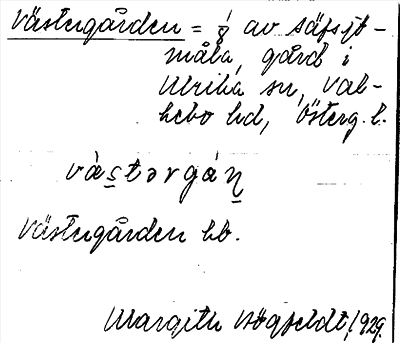 Västergården = 1/8 av Säfsyt-
måla, gård i
Ulrika sn, Val-
kebo hd, Österg. l.
vàs̲tərgán̲
Västergården hb.
Margith Högfeldt, 1929.